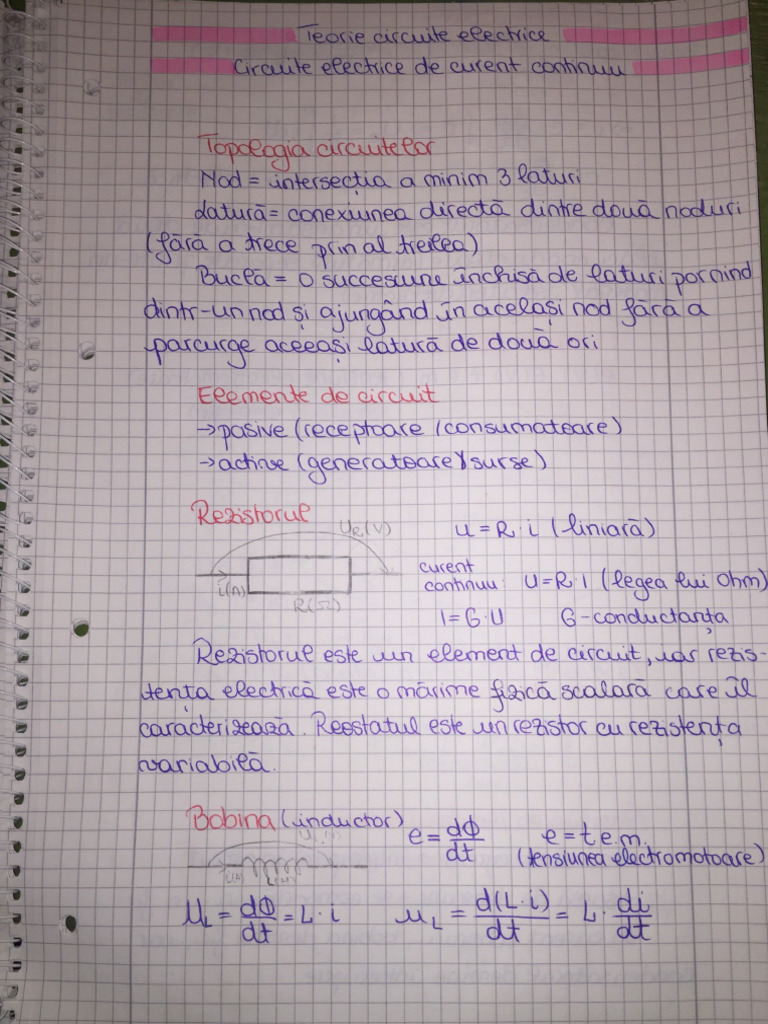 Teorie circuite electrice
Circuite electrice de curent continuu
Topologia circuitelor
Nod = intersecția a minim 3 laturi
Latură = conexiunea directă dintre două noduri
(fără a trece prin al treilea)
Buclă = o succesiune închisă de laturi pornind
dintr-un nod și ajungând în același nod fără a
parcurge aceeași latură de două ori
Elemente de circuit
→ pasive (receptoare / consumatoare)
→ active (generatoare / surse)
Rezistorul
u = R · i (liniară)
curent
continuu: U = R · I (legea lui Ohm)
I = G · U G - conductanța
i(A)
R(Ω)
Rezistorul este un element de circuit, iar rezis-
tența electrică este o mărime fizică scalară care îl
caracterizează. Reostatul este un rezistor cu rezistența
variabilă.
Bobina (inductor)
e = dΦ/dt e = t.e.m.
(tensiunea electromotoare)
u_L = dΦ/dt = L · i u_L = d(L · i)/dt = L · di/dt